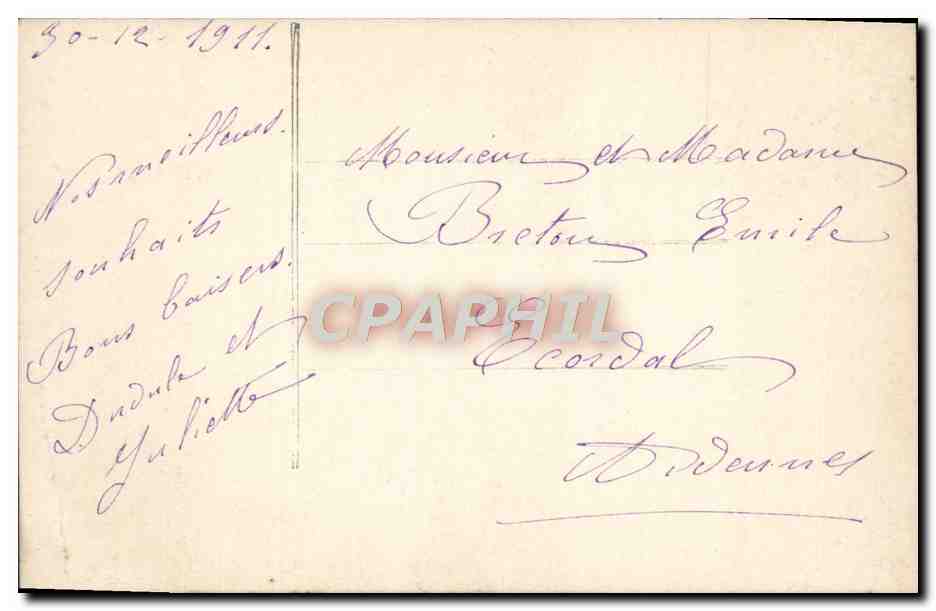 30-12-1911.
Nos meilleurs.
souhaits
Bons baisers.
Dudule et
Juliette
Monsieur et Madame
Breton Emile
CPAPHIL
Ecordal
Ardennes